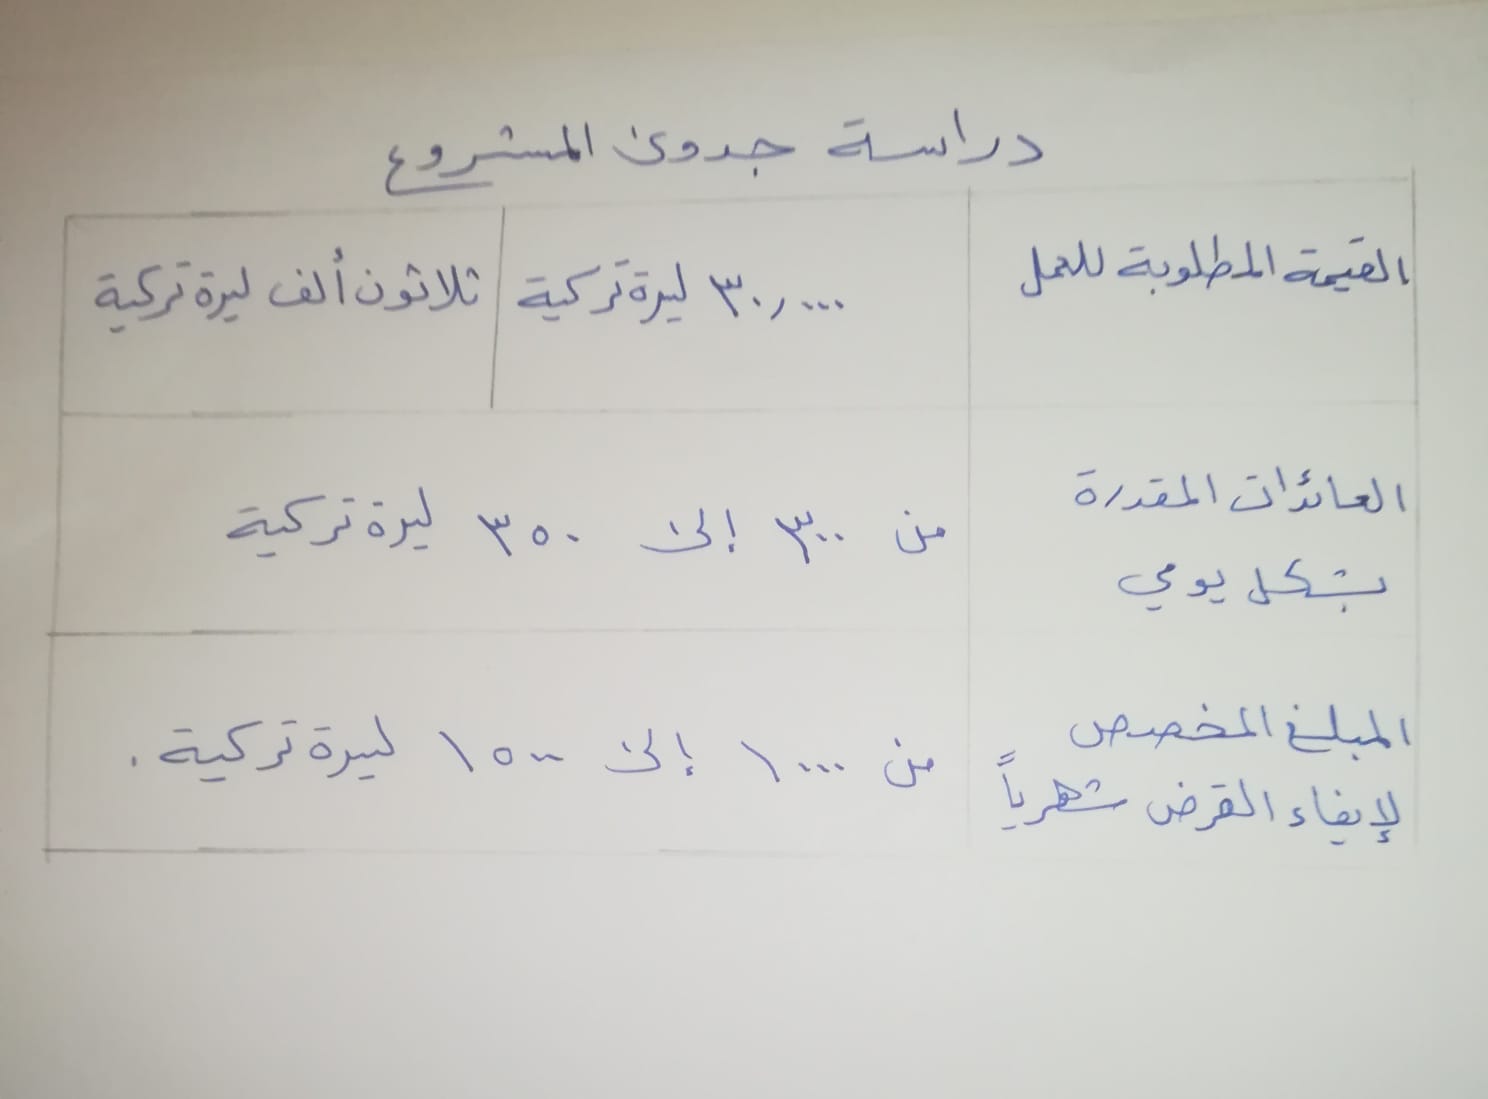 دراسة جدوى المشروع
القيمة المطلوبة للعمل
٣٠,٠٠٠ ليرة تركية
ثلاثون ألف ليرة تركية
العائدات المقدرة
بشكل يومي
من ٣٠٠ إلى ٣٥٠ ليرة تركية
المبلغ المخصص
لإيفاء القرض شهرياً
من ١٠٠٠ إلى ١٥٠٠ ليرة تركية .